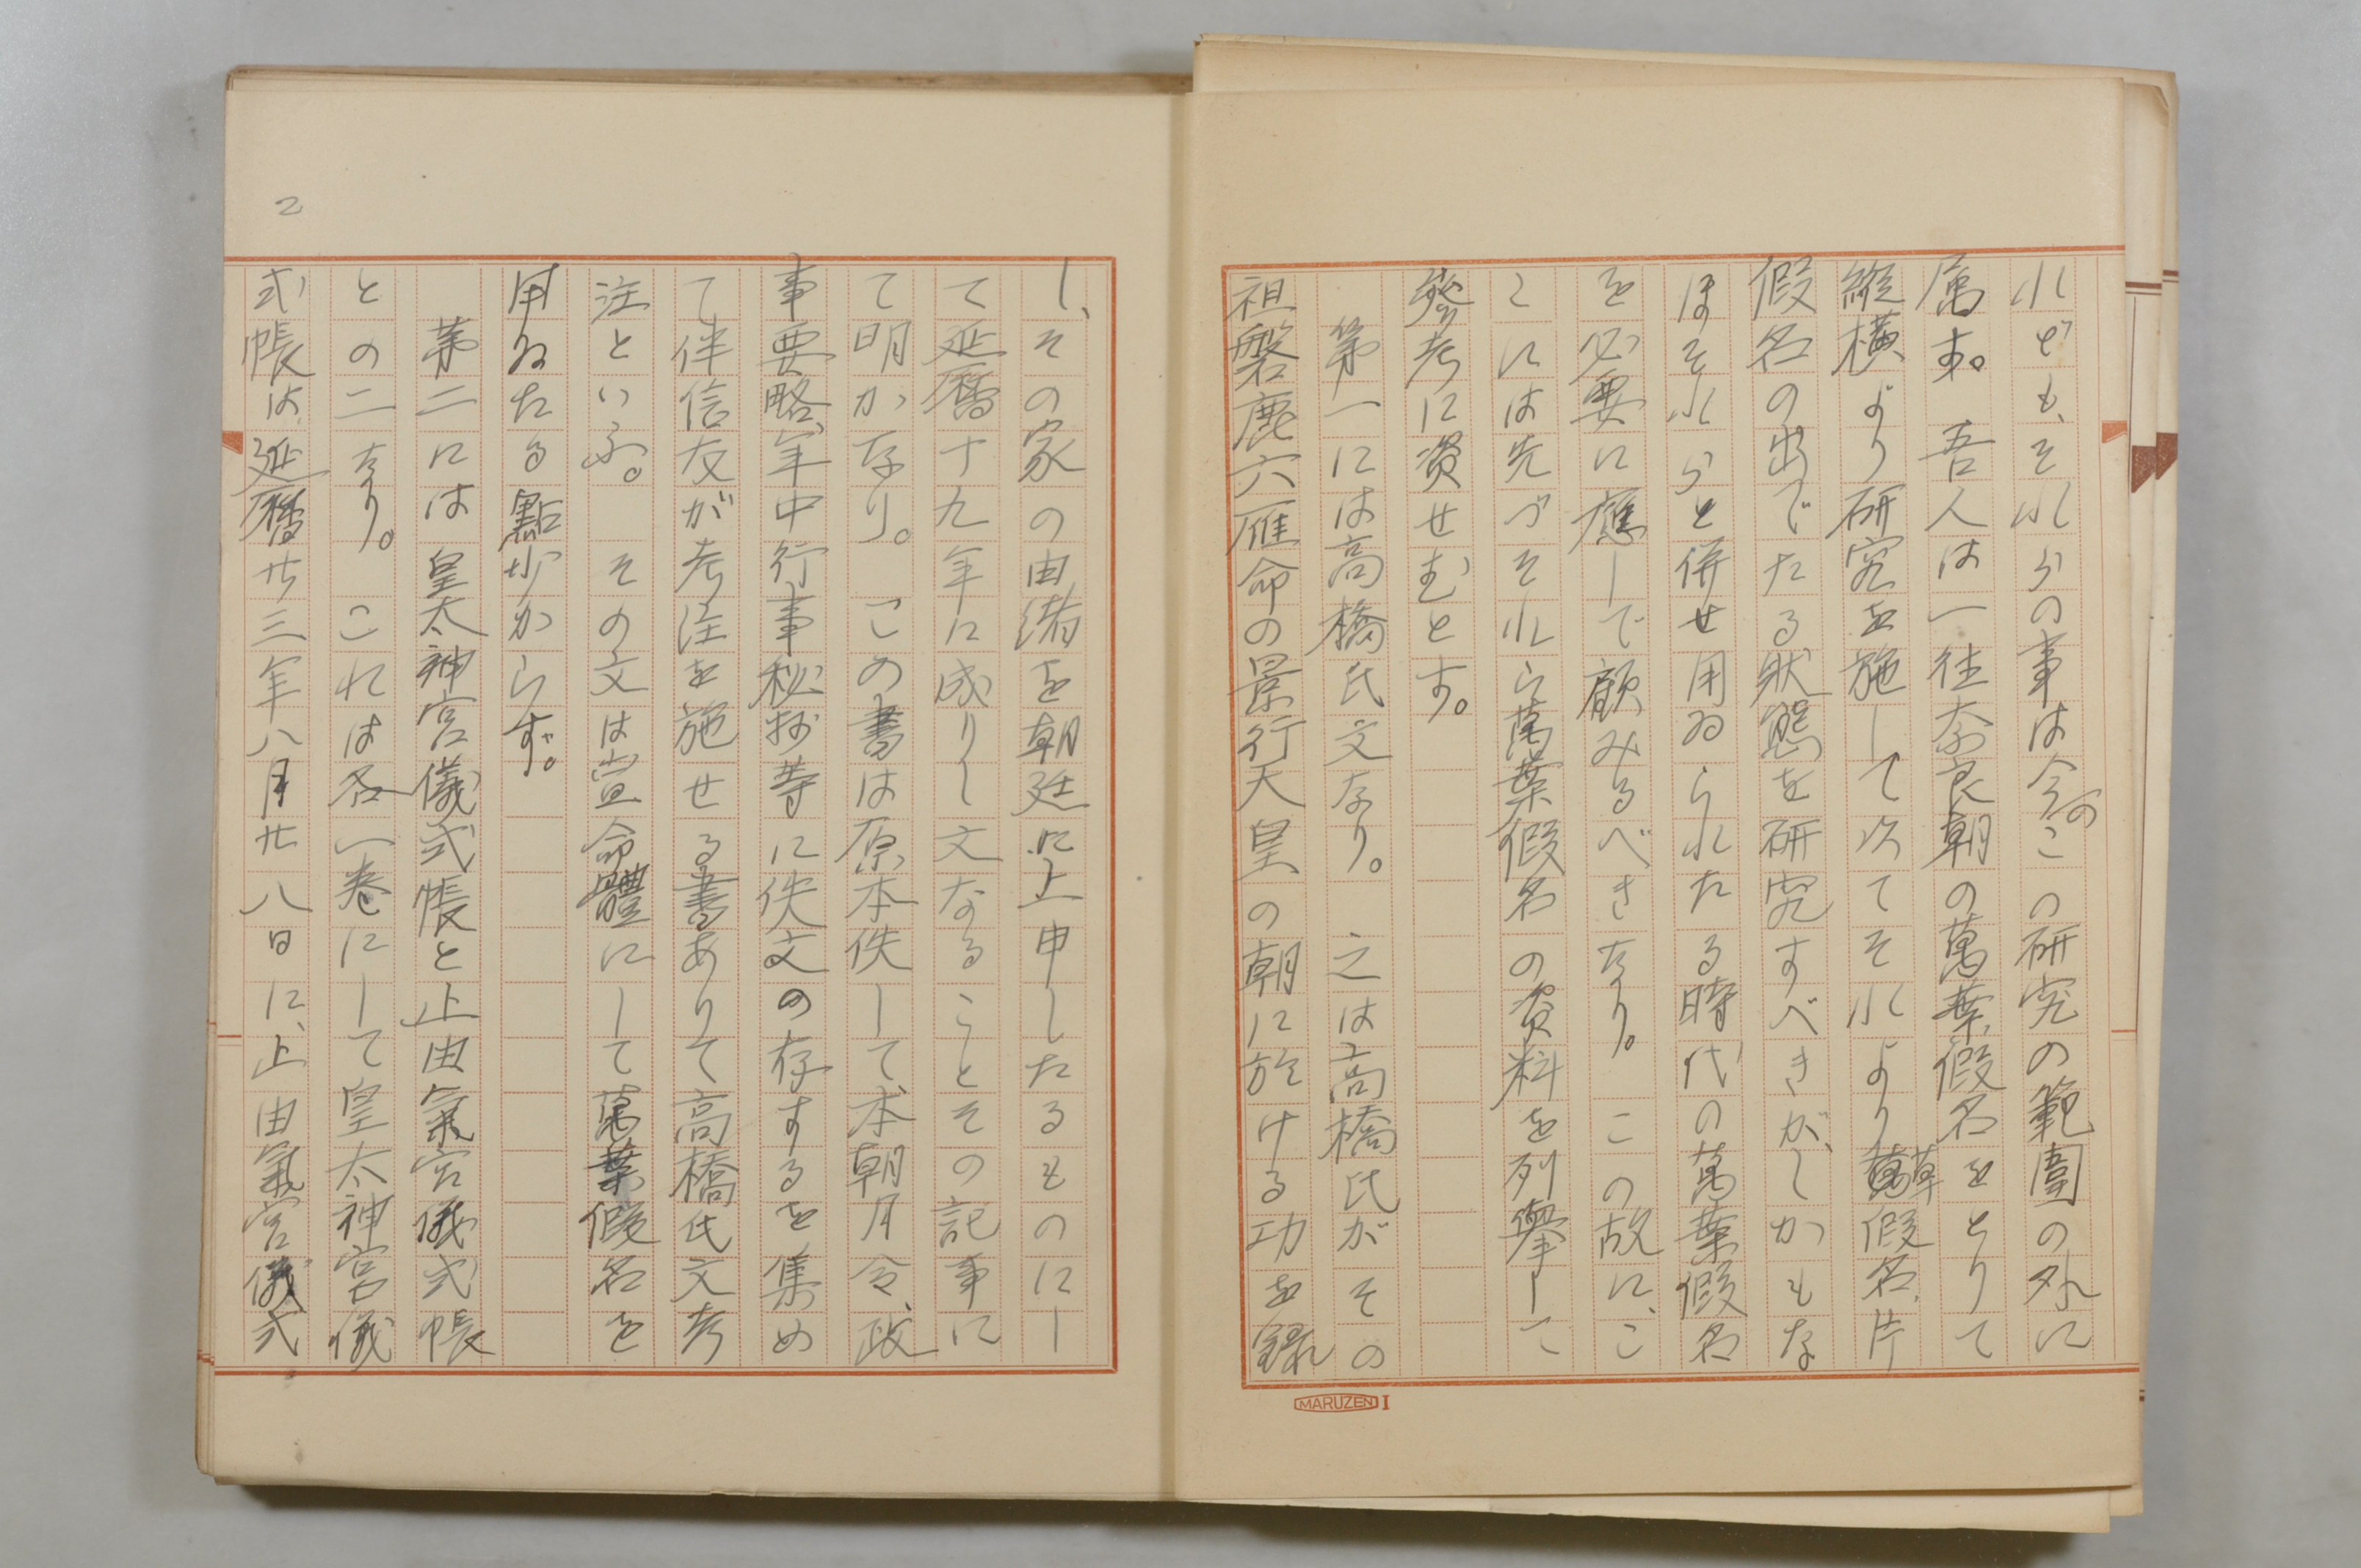 れども、それらの事は今のこの研究の範圍の外に
属す。吾人は一往奈良朝の萬葉假名をとりて
縱横より研究を施して次てそれより草假名、片
假名の出でたる狀態を研究すべきが、しかもな
ほそれらと併せ用ゐられたる時代の萬葉假名
を必要に應じて顧みるべきなり。この故に、こ
こには先づそれら萬葉假名の資料を列擧して
參考に資せむとす。
第一には高橋氏文なり。之は高橋氏がその
祖磐鹿六雁命の景行天皇の朝に於ける功を録
MARUZEN I
し、その家の由緒を朝廷に上申したるものにし
て延曆十九年に成りし文なることその記事に
て明かなり。この書は原本佚して本朝月令、政
事要略、年中行事秘抄等に佚文の存するを集め
て伴信友が考注を施せる書ありて高橋氏文考
注といふ。その文は宣命體にして萬葉假名を
用ゐたる點少からず。
第二には皇太神宮儀式帳と止由氣宮儀式帳
との二なり。これは各一卷にして皇太神宮儀
式帳は延曆廿三年八月廿八日に、止由氣宮儀式
2